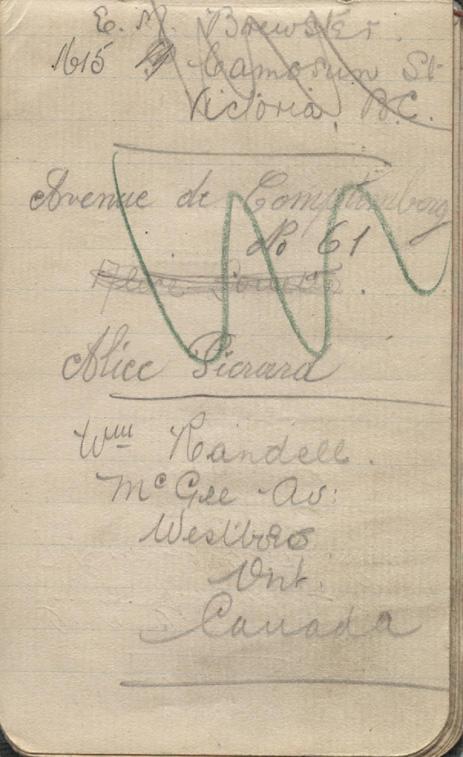 E. M. Brewster.
1615 Camosun St
Victoria, B.C.
Avenue de
No 61
Alice Picrard
Wm Randell.
McGee Av:
Westboro
Ont.
Canada